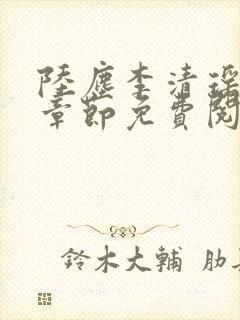 陸塵李清瑤
章節免費閱
鈴木大輔 肋